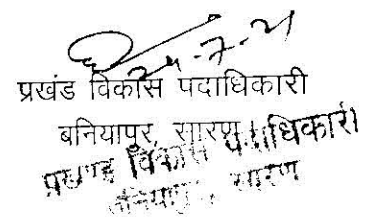 24-7-21
प्रखंड विकास पदाधिकारी
बनियापुर, सारण
प्रखण्ड विकास पदाधिकारी
बनियापुर, सारण